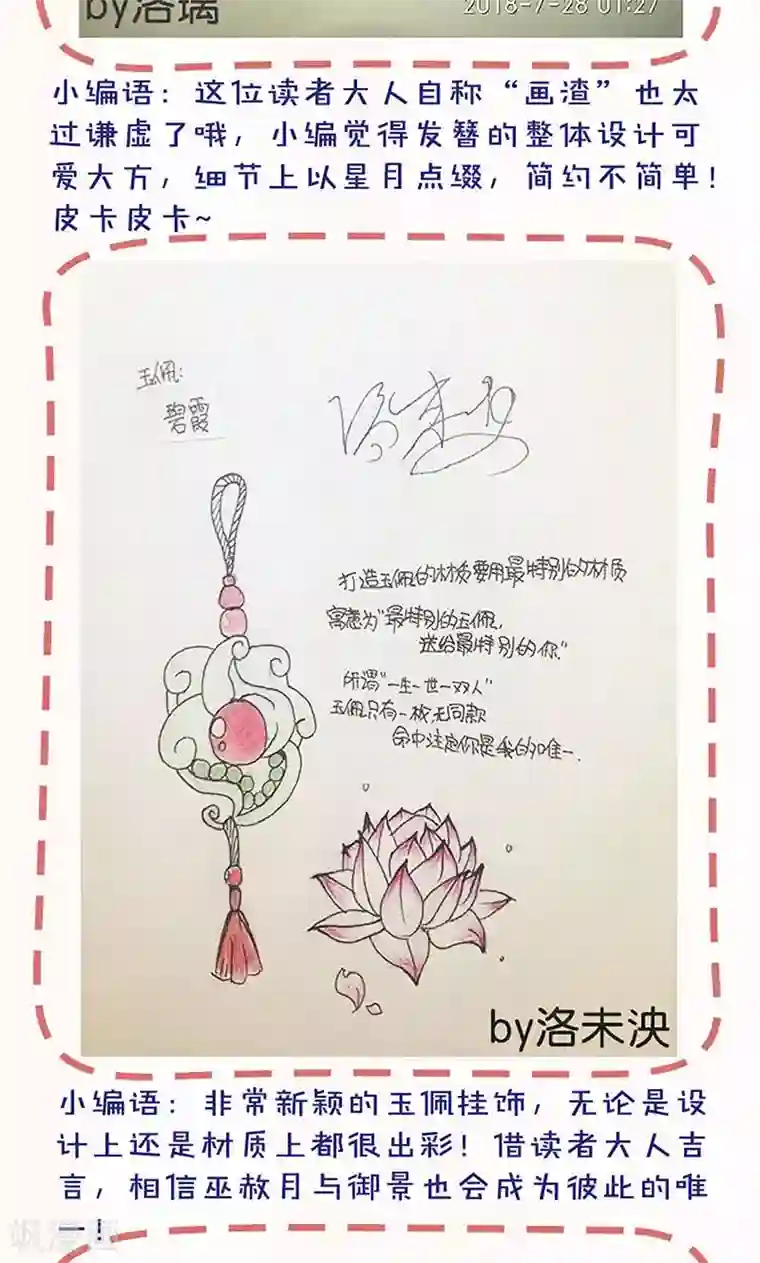 by洛璃
2018-7-28 01:27
小编语：这位读者大人自称“画渣”也太
过谦虚了哦，小编觉得发簪的整体设计可
爱大方，细节上以星月点缀，简约不简单！
皮卡皮卡~
玉佩：
碧霞
洛未央
打造玉佩的材质要用最特别的材质
寓意为“最特别的玉佩，
送给最特别的你”
所谓“一生一世一双人”
玉佩只有一枚无同款
命中注定你是我的唯一．
by洛未泱
小编语：非常新颖的玉佩挂饰，无论是设
计上还是材质上都很出彩！借读者大人吉
言，相信巫赦月与御景也会成为彼此的唯
一！